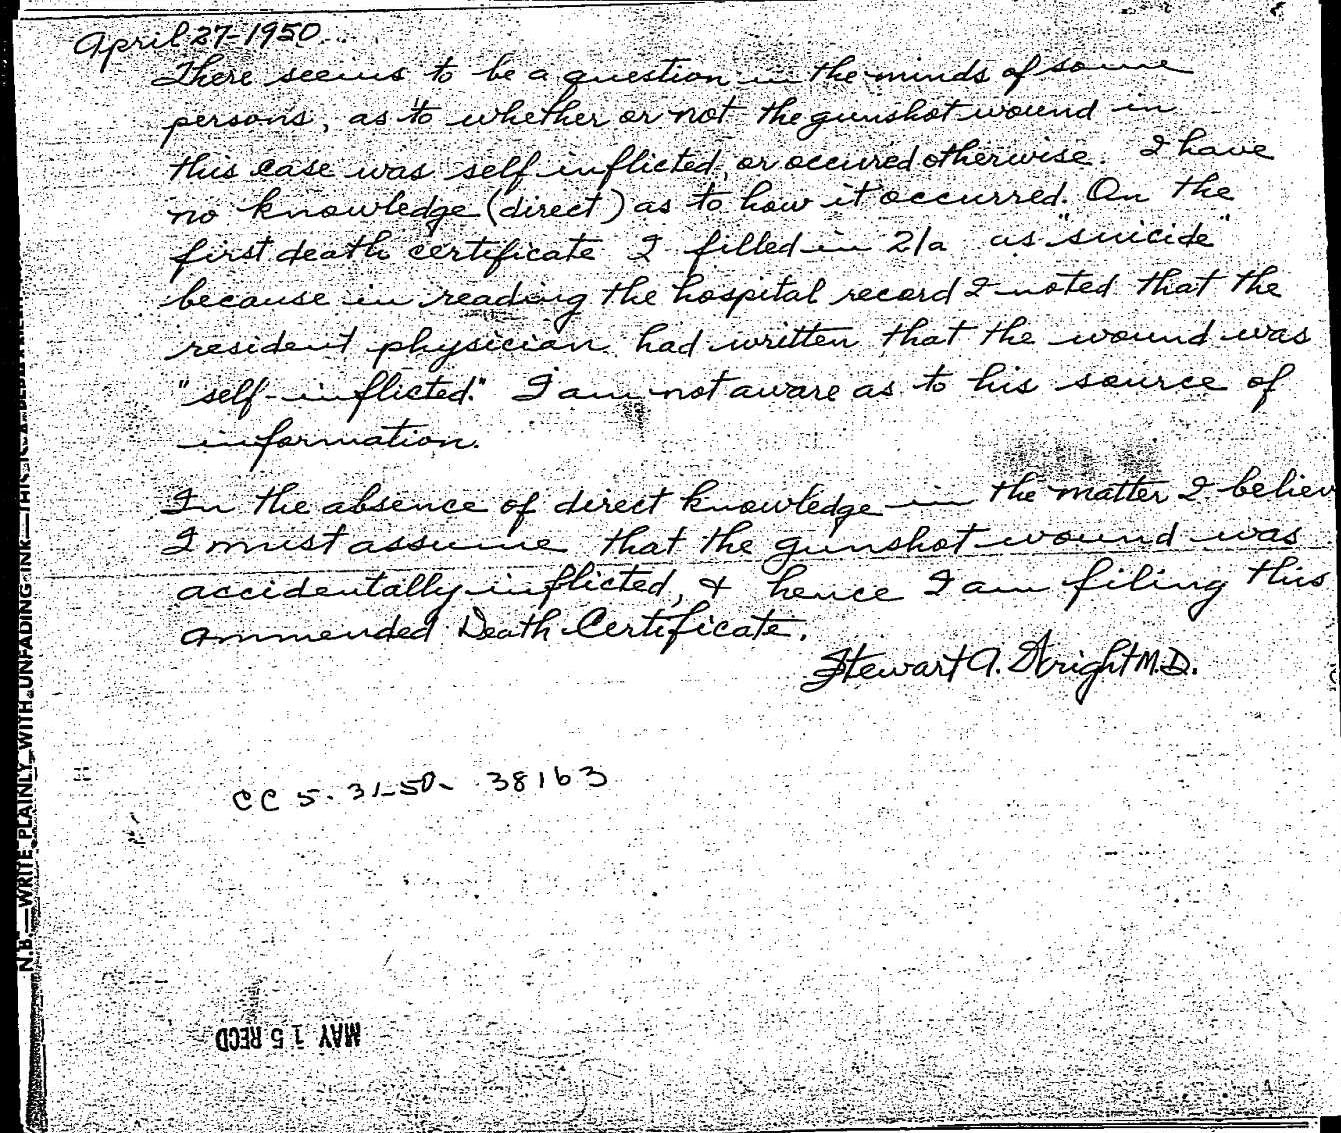 April 27-1950
There seems to be a question in the minds of some
persons, as to whether or not the gunshot wound in
this case was self inflicted, or occured otherwise. I have
no knowledge (direct) as to how it occurred. On the
first death certificate I filled in 21a as "suicide"
because in reading the hospital record I noted that the
resident physician had written that the wound was
"self-inflicted." I am not aware as to his source of
information.
In the absence of direct knowledge in the matter I believ
I must assume that the gunshot wound was
accidentally inflicted, & hence I am filing this
ammended Death Certificate.
Stewart A. Wright M.D.
CC 5-31-50- 38163
MAY 15 RECD
N.B.—WRITE PLAINLY WITH UNFADING INK—THIS IS A